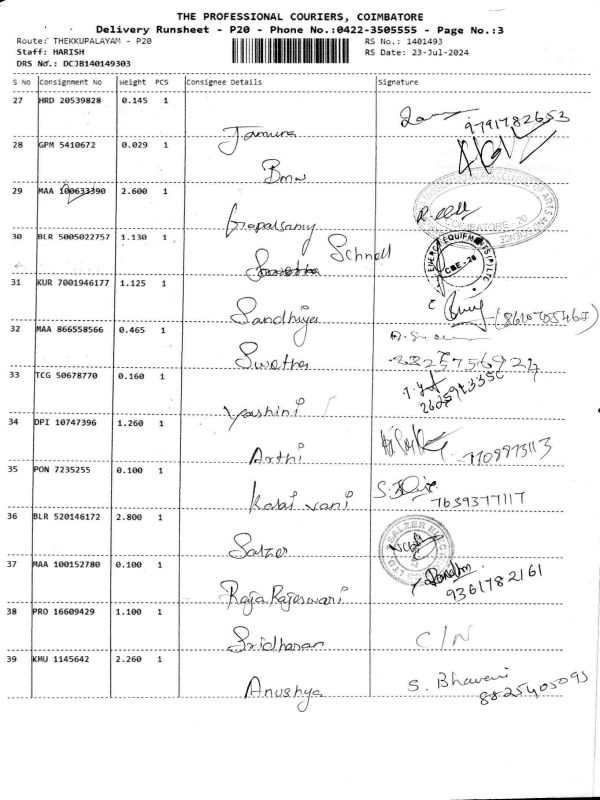 THE PROFESSIONAL COURIERS, COIMBATORE
Delivery Runsheet - P20 - Phone No.:0422-3505555 - Page No.:3
Route: THEKKUPALAYAM - P20
RS No.: 1401493
Staff: HARISH
RS Date: 23-Jul-2024
DRS No.: DCJB140149303
S No Consignment No Weight PCS Consignee Details Signature
27 HRD 20539828 0.145 1
Jamuna 9791782653
28 GPM 5410672 0.029 1
Bmw
29 MAA 100633390 2.600 1
Gopalsamy
30 BLR 5005022757 1.130 1
Schnell
31 KUR 7001946177 1.125 1
Sandhiya
32 MAA 866558566 0.465 1
Swatha
33 TCG 50678770 0.160 1
Yashini
34 DPI 10747396 1.260 1
Arthi 7708973113
35 PON 7235255 0.100 1
Kalai vani 7639377117
36 BLR 520146172 2.800 1
Salzer
37 MAA 100152780 0.100 1
Raja Rajeswari 9361782161
38 PRO 16609429 1.100 1
Sridharan C/N
39 KMU 1145642 2.260 1
Anushya S. Bhavani
8825405093